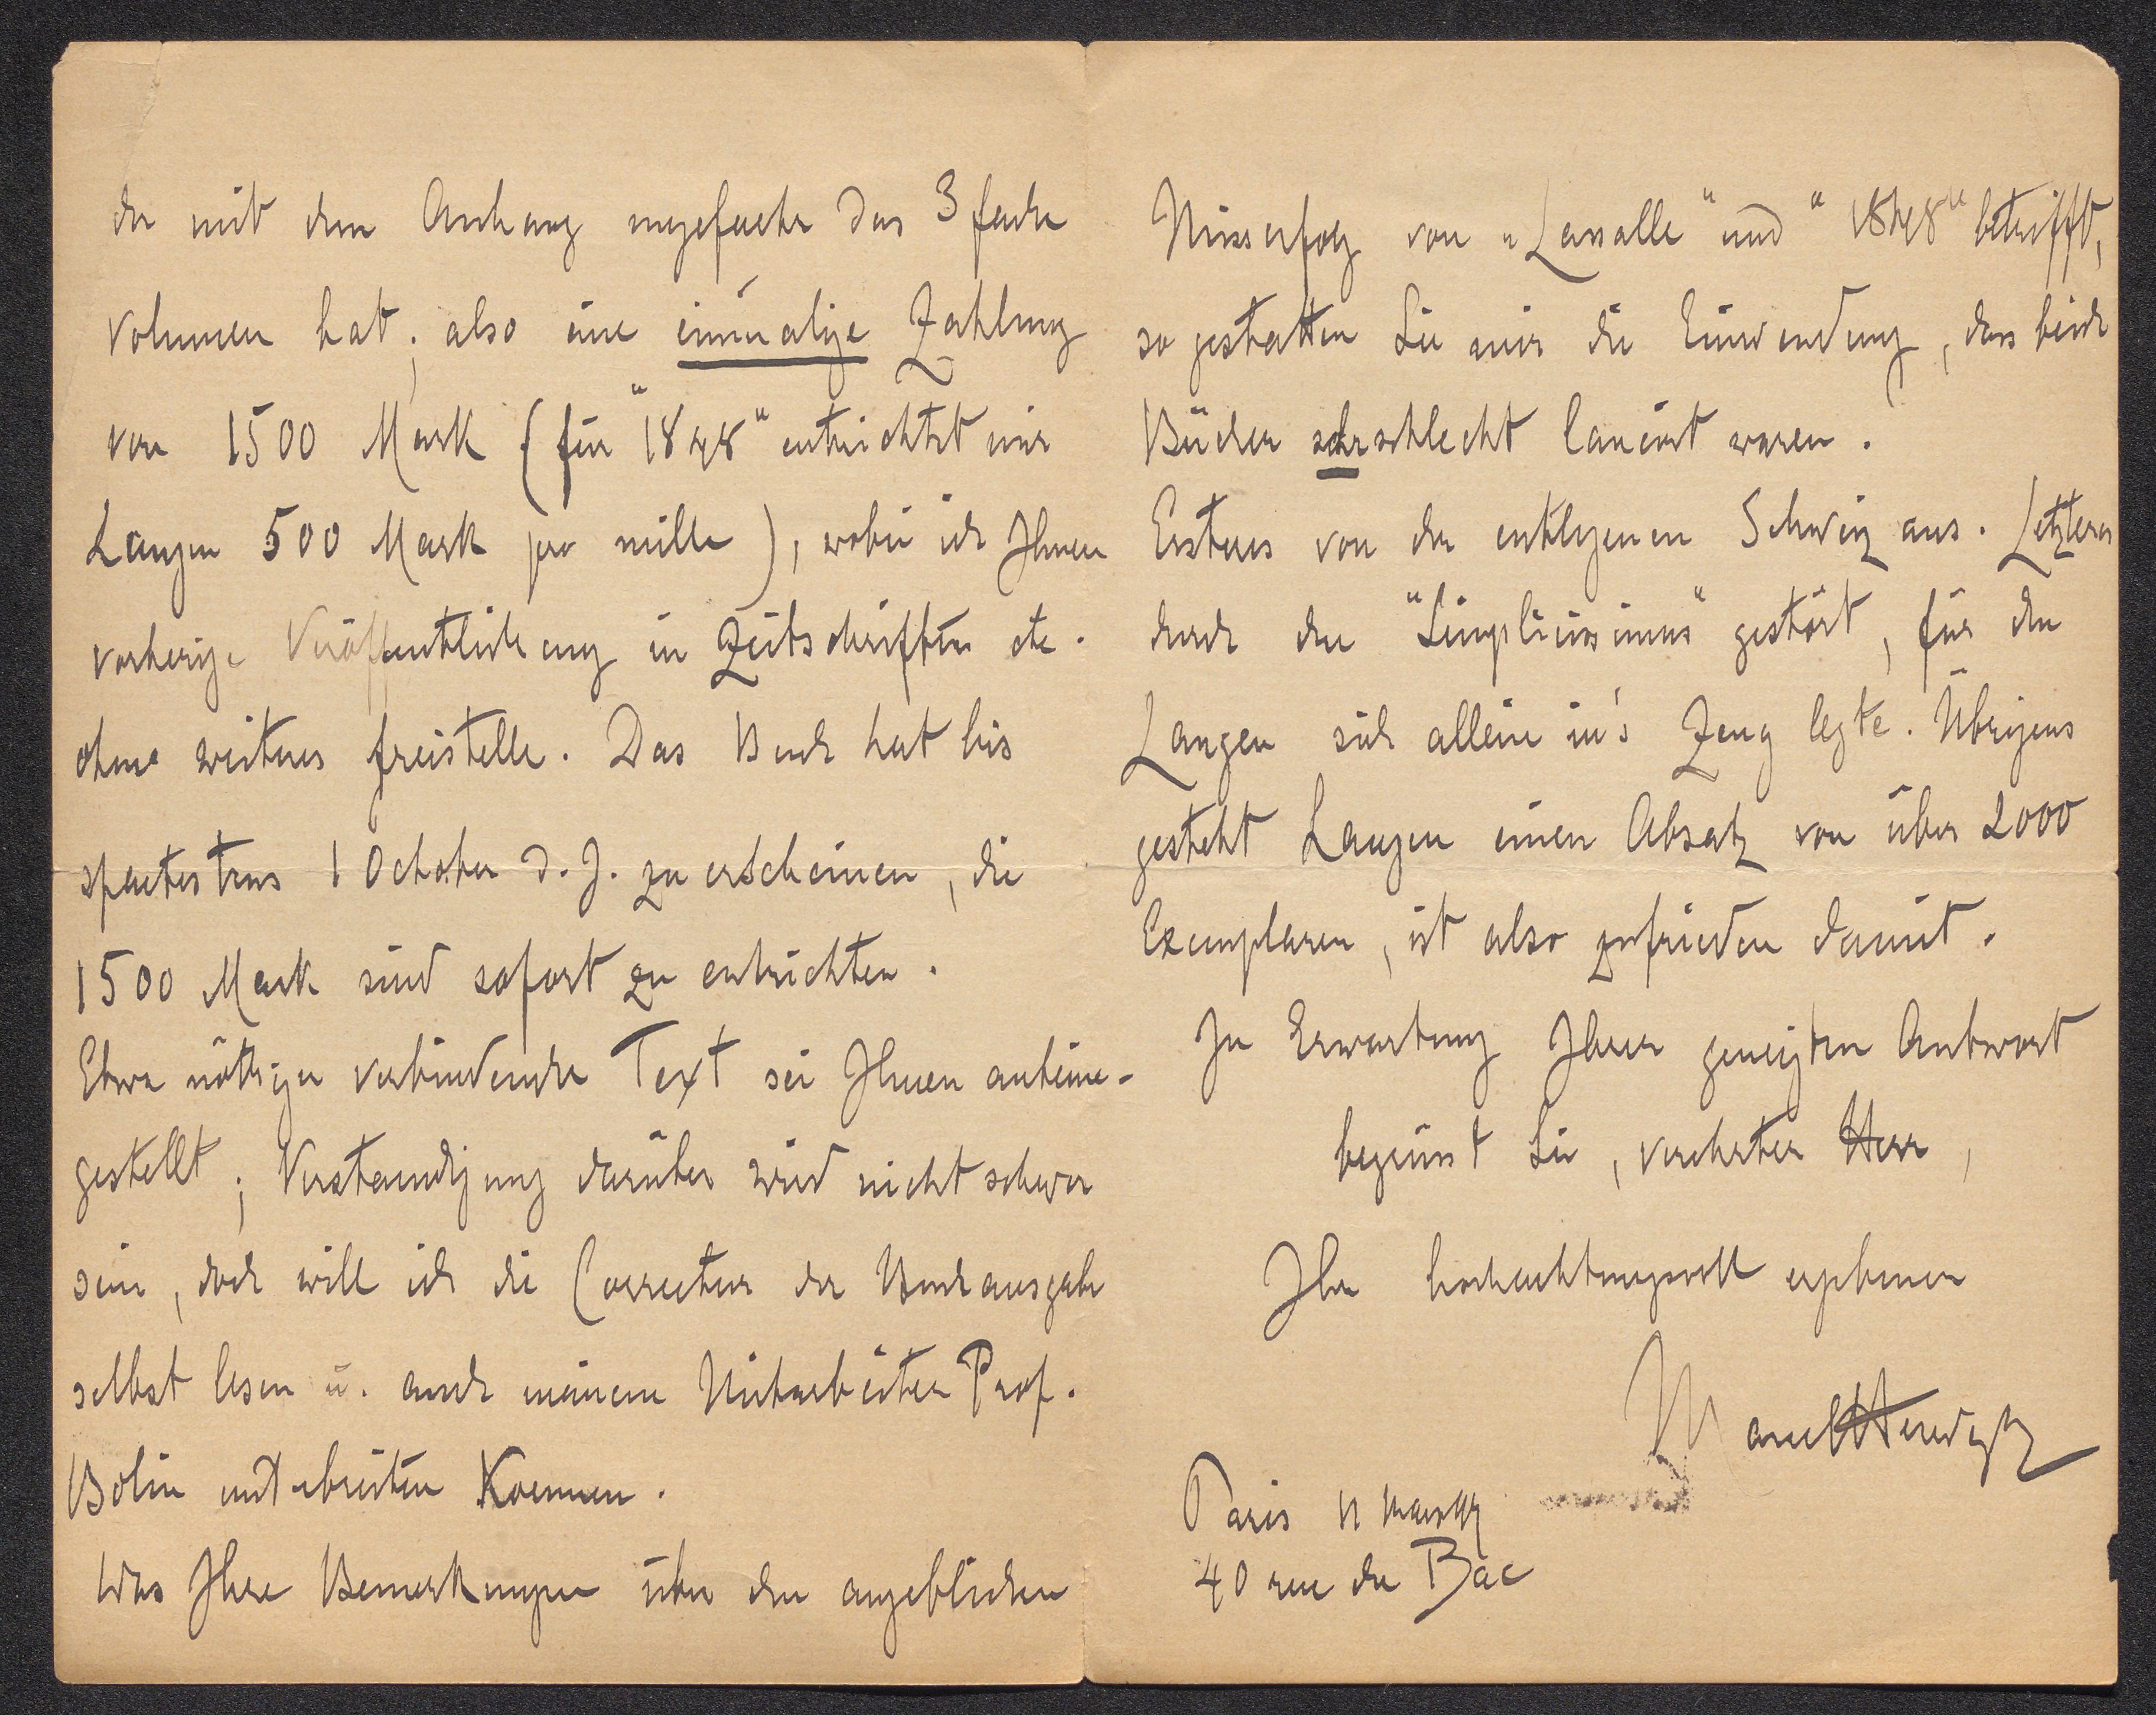 der mit dem Anhang ungefaehr das 3 fache
Volumen hat; also eine einmalige Zahlung
von 1500 Mark (für "1848" entrichtet mir
Langen 500 Mark pro mille), wobei ich Ihnen
vorherige Veröffentlichung in Zeitschriften etc.
ohne weiteres freistelle. Das Buch hat bis
spaetestens 1 October d. J. zu erscheinen, die
1500 Mark sind sofort zu entrichten.
Etwa nöthiger verbindender Text sei Ihnen anheim-
gestellt; Verstaendigung darüber wird nicht schwer
sein, doch will ich die Correctur der Buchausgabe
selbst lesen u. auch meinem Mitarbeiter Prof.
Bolin unterbreiten koennen.
Was Ihre Bemerkungen über den angeblichen
Misserfolg von "Lassalle" und "1848" betrifft,
so gestatten Sie mir die Einwendung, dass beide
Bücher sehr schlecht lancirt waren.
Ersteres von der entlegenen Schweiz aus. Letzteres
durch den "Simplicissimus" gestört, für den
Langen sich allein in's Zeug legte. Übrigens
gesteht Langen einen Absatz von über 2000
Exemplaren, ist also zufrieden damit.
In Erwartung Ihrer geneigten Antwort
begrüsst Sie, verehrter Herr,
Ihr hochachtungsvoll ergebener
Marcel Herwegh
Paris
40 rue du Bac